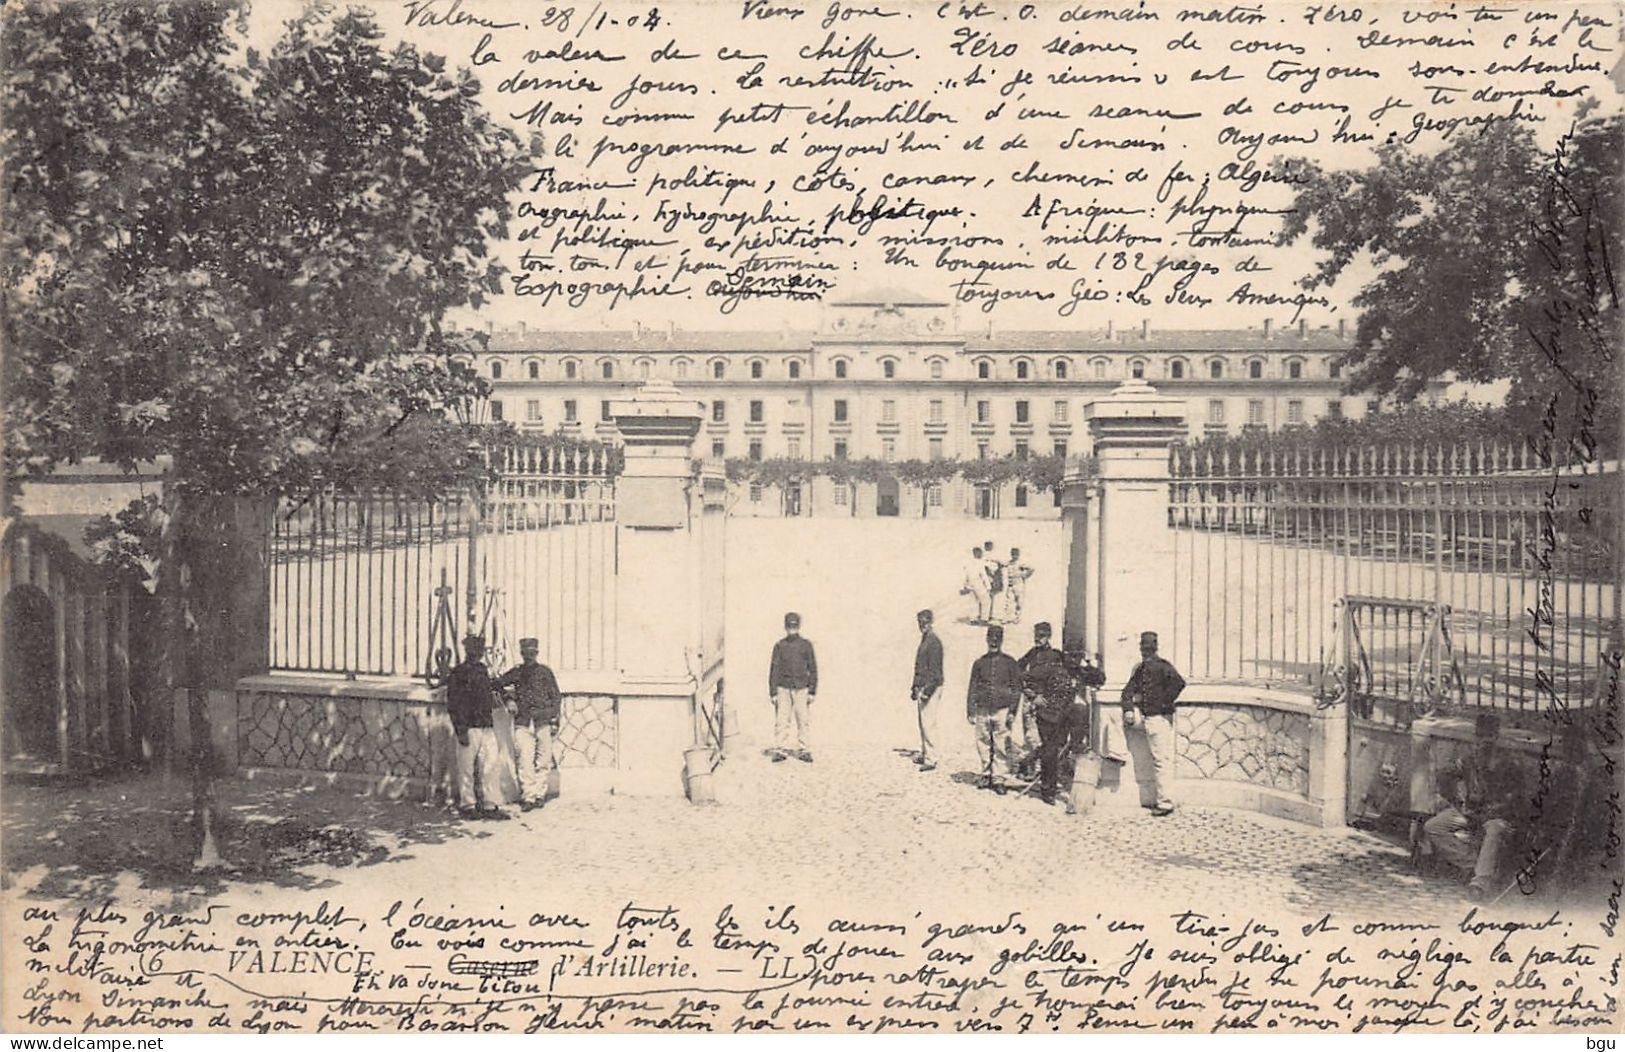 Valence. 28/1-04. Vieux gone. C'est. 0. demain matin. Zéro, vois tu un peu
la valeur de ce chiffre. Zéro séances de cours. Demain c'est le
dernier jour. La restriction "Si je réussis" est toujours sous-entendue.
Mais comme petit échantillon d'une séance de cours je te donne
le programme d'aujourd'hui et de demain. Aujourd'hui : Géographie
France : politique, côtés, canaux, chemins de fer ; Algérie
Orographie, hydrographie, politique. Afrique : physique
et politique, expéditions, missions,
ton. ton. ! et pour terminer : Un bouquin de 132 pages de
Topographie. Aujourd'hui Demain toujours Géo : Les deux Amériques,
au plus grand complet, l'océanie avec toutes les iles aussi grandes qu'un tire-jus et comme bouquet :
La trigonométrie en entier. Tu vois comme j'ai le temps de jouer aux gobilles. Je suis obligé de négliger la partie
militaire et pour rattraper le temps perdu je ne pourrai pas aller à
6 VALENCE. — Caserne d'Artillerie. — LL
Eh va donc titou !
Lyon Dimanche mais Mercredi si je n'y passe pas la journée entière, je trouverai bien toujours le moyen d'y coucher
Nous partirons de Lyon pour Besançon Jeudi matin par un express vers 7h. Pense un peu à moi jusque là, j'ai besoin